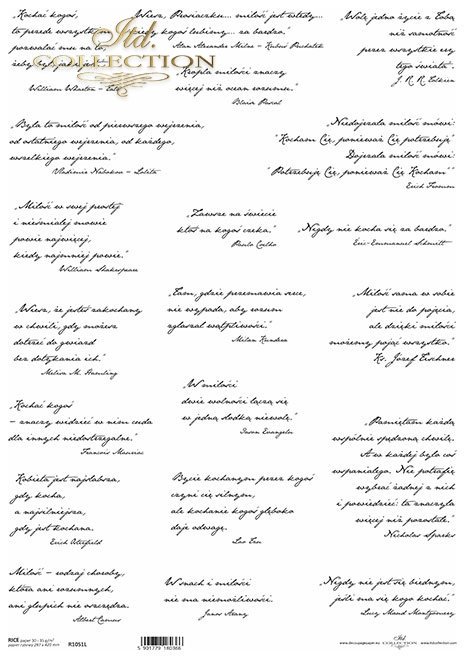 „Kochać kogoś,
to przede wszystkim
pozwalać mu na to,
żeby był jaki jest."
William Wharton - Tato
„Wiesz, Prosiaczku... miłość jest wtedy...
kiedy kogoś lubimy... za bardzo."
Alan Alexander Milne - Kubuś Puchatek
Itd.
COLLECTION
„Kropla miłości znaczy
więcej niż ocean rozumu."
Blaise Pascal
„Wolę jedno życie z Tobą
niż samotność
przez wszystkie ery
tego świata."
J. R. R. Tolkien
„Była to miłość od pierwszego wejrzenia,
od ostatniego wejrzenia, od każdego,
wszelkiego wejrzenia."
Vladimir Nabokov - Lolita
„Niedojrzała miłość mówi:
"Kocham Cię, ponieważ Cię potrzebuję"
Dojrzała miłość mówi:
"Potrzebuję Cię, ponieważ Kocham""
Erich Fromm
„Miłość w swej prostej
i nieśmiałej mowie
powie najwięcej,
kiedy najmniej powie."
William Shakespeare
„Zawsze na świecie
ktoś na kogoś czeka."
Paulo Coelho
„Nigdy nie kocha się za bardzo."
Eric-Emmanuel Schmitt
„Wiesz, że jesteś zakochany
w chwili, gdy możesz
dotrzeć do gwiazd
bez dotykania ich."
Melisa M. Hamling
„Tam, gdzie przemawia serce,
nie wypada, aby rozum
zgłaszał wątpliwości."
Milan Kundera
„Miłość sama w sobie
jest nie do pojęcia,
ale dzięki miłości
możemy pojąć wszystko."
Ks. Józef Tischner
„W miłości
dwie wolności łączą się
w jedną słodką niewolę."
Susan Evangelis
„Kochać kogoś
- znaczy widzieć w nim cuda
dla innych niedostrzegalne."
Francois Mauriac
„Pamiętam każdą
wspólnie spędzoną chwilę.
A w każdej było coś
wspaniałego. Nie potrafię
wybrać żadnej z nich
i powiedzieć: ta znaczyła
więcej niż pozostałe."
Nicholas Sparks
Kobieta jest najsłabsza,
gdy kocha,
a najsilniejsza,
gdy jest kochana.
Erich Osterfield
Bycie kochanym przez kogoś
czyni cię silnym,
ale kochanie kogoś głęboko
daje odwagę.
Lao Tzu
Miłość - rodzaj choroby,
która ani rozumnych,
ani głupich nie oszczędza.
Albert Camus
W snach i miłości
nie ma niemożliwości.
Janos Arany
„Nigdy nie jest się biednym,
jeśli ma się kogo kochać."
Lucy Maud Montgomery
RICE paper 30 - 35 g/m²
papier ryżowy 297 x 420 mm
R1051L
5 901779 180368
www.decoupagepaper.eu
Itd.
COLLECTION